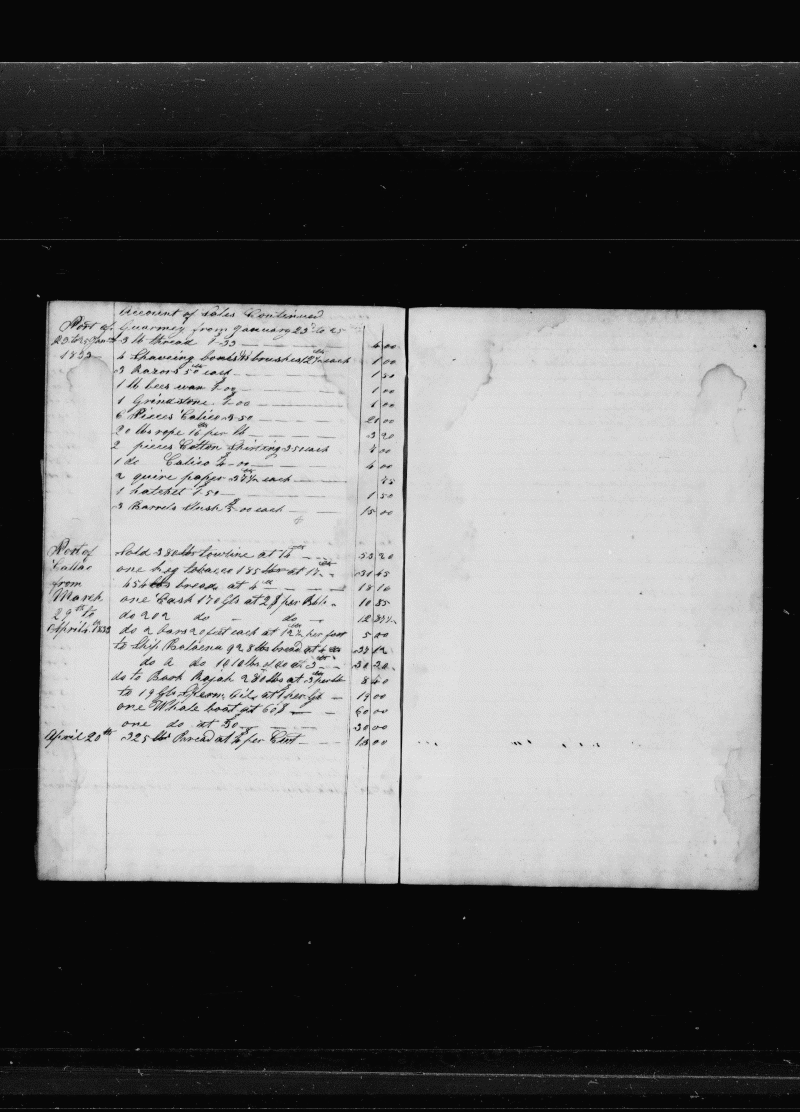 Account of Sales Continued
Port of Guarmey from January 23d to 25
23 to 25 Jan 3 lb thread 1-33 4 00
1853 4 Shaveing boxes & brushes each 1 00
3 Razors 50 cts each 1 50
1 lb bees wax $1-00 1 00
1 Grindstone 6-00 6 00
6 Pieces Calico 3 50 21 00
20 lbs rope 16 cts per lb 3 20
2 pieces Cotton Shirting 3 50 each 7 00
1 do Calico 4-00 4 00
2 quire paper 37½ each 75
1 hatchet 1-50 1 50
3 Barrels Slush $5 00 each 15 00
Port of Sold 380 lbs towline at 14 cts 53 20
Callao one keg tobacco 185 lbs at 17 31 45
from 454 lbs bread at 4 cts 18 16
March one Cask 170 Gls at 2$ per Bbl 10 85
29th to do 202 do - do -
April 1853 do 2 bars 20 feet each at 12½ per foot 5 00
to Ship Balaena 928 lbs bread at 4 cts 37 12
do 2 do 1010 lbs do at 3 30 30
do to Bark Rajah 280 lbs at 3 cts per lb 8 40
to 19 Gls Sperm Oil at 1 per Gl 19 00
one Whale boat at 60$ 60 00
one do at 30 30 00
April 20th 325 lbs Bread at 4$ per Cwt 13 00